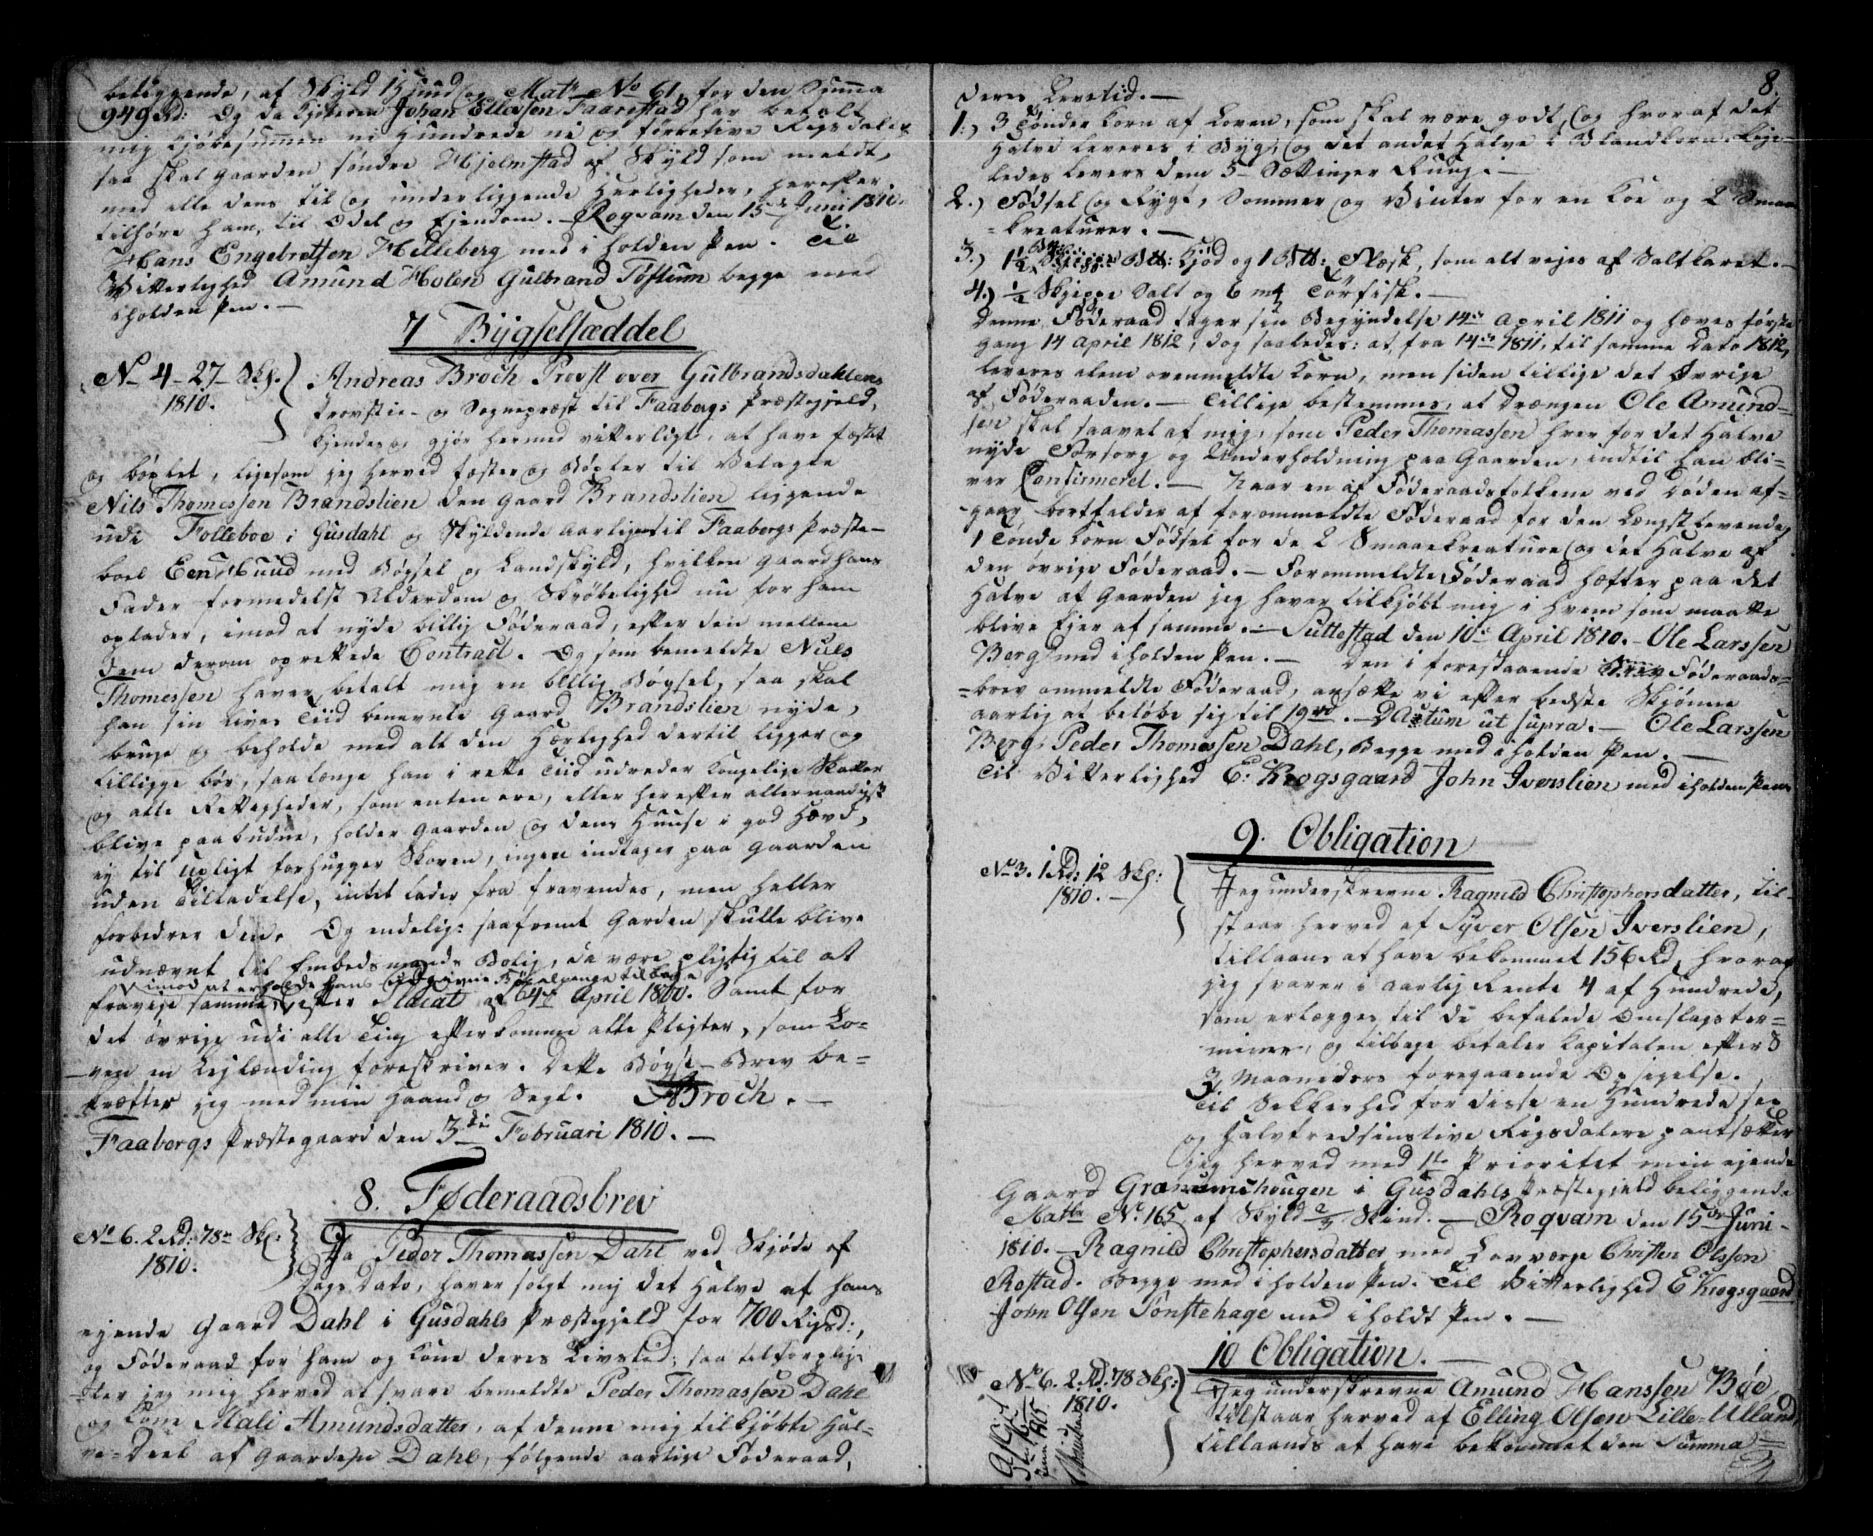 beliggende, af Skyld 1 Hud og Matr No 61, for den Summa
949 Rd: Og da Kjøberen Johan Ellevsen Faarestad har betalt
mig Kjøbesummen ni Hundrede ni og førretive Rigsdaler
saa skal Gaarden søndre Hjelmstad af Skyld som meldt,
med alle dens til og underliggende Herligheder, herefter
tilhøre ham, til Odel og Ejendom. — Roqvam den 15de Juni 1810.
Hans Engebretsen Hilleberg med i holden Pen. Til
Vitterlighed Amund Holen Gulbrand Tostum begge med
iholden Pen. —
7 Bygselsæddel
No 4 - 27 - Skl.
1810.
Andreas Broch Provst over Gulbrandsdahlens
Provstie - og Sognepræst til Faabergs Præstegjeld,
kjendes og gjør hermed vitterligt, at have fæstet
og böxlet, ligesom jeg herved fæster og böxler til Velagte
Nils Thomessen Brandslien den Gaard Brandslien liggende
udi Folleboe i Gusdahl og Skyldende aarligen til Faabergs Præste-
boel Een Huud med Bögsel og Landskyld, hvilken Gaard hans
Fader formedelst Alderdom og Skröbelighed nu for ham
oplader, imod at nyde billig Föderaad, efter den mellem
dem derom oprettede Contract. Og som bemeldte Niels
Thomessen haver betalt mig en billig Bögsel, saa skal
han sin Lives Tiid benævnte Gaard Brandslien nyde,
bruge og beholde med alt den Herlighed dertil ligger og
tilligge bör, saalænge han i rette Tiid udreder Kongelige Skatter
og alle Rettigheder, som enten ere, eller herefter allernaadigst
blive paabudne, holder Gaarden og dens Huuse i god Hævd,
ej til upligt forhugger Skoven, ingen indtager paa Gaarden
uden Tilladelse, intet lader fra fravendes, men heller
forbedrer den. Og endelig: saafremt Garden skulle blive
udnævnt til Embedsmands Bolig, da være pligtig til at
imod at erholde hans udgivne Bögselpenge tilbage
fravige samme, efter Placat af 4de April 1800. Samt for
det övrige udi alle Ting efterkomme alle Pligter, som Lo-
ven en Lejlænding foreskriver. Dette Bögsel-Brev be-
kræfter jeg med min Haand og Segl. ABroch. —
Faabergs Præstegaard den 3die Februari 1810. —
8. Føderaadsbrev
No. 6. 2 Rd: 78 Sk:
1810.
Da Peder Thomassen Dahl ved Skjöde af
Dags Dato, haver solgt mig det Halve af hans
ejende Gaard Dahl i Gusdahls Præstegjeld for 700 Rigsd:,
og Föderaad for ham og Kone deres Livstid; saa tilforplig-
ter jeg mig herved at svare bemeldte Peder Thomassen Dahl
og Kone Mali Amundsdatter, af denne mig tilkjöbte Hal-
ve-Deel af Gaarden Dahl, fölgende aarlige Föderaad,
8.
deres Levetid. —
1.) 3 Tönder Korn af Loven, som skal være godt, og hvoraf det
Halve leveres i Byg, og det andet Halve i Blandkorn. Lige-
ledes levers dem 5 Sættinger Rug. —
2.) Födsel og Rygt, Sommer og Vinter for en Koe og 2 Smaa
-kreaturer. —
3.) 1½ Bpd: Kjöd og 1 Bpd: Flæsk, som alt vejes af Saltkaret. —
4.) ½ Skjeppe Salt og 6 mk Törfisk. —
Denne Föderaad tager sin Begyndelse 14de April 1811 og hæves förste
gang 14 April 1812, dog saaledes: at, fra 14de 1811, til samme Dato 1812,
leveres alene ovenmeldte Korn, men siden tillige det Övrige
af Föderaaden. — Tillige bestemmes, at Drængen Ole Amund-
sen skal saavel af mig, som Peder Thomassen hver for det Halve
nyde Forsorg og Underholdning paa Gaarden, indtil han bli-
ver Confirmeret. — Naar en af Föderaadsfolkene ved Döden af-
gaar bortfalder af forommeldte Föderaad for den Længstlevende,
1 Tönde Korn Födsel for de 2 Smaaekreature og det Halve af
den övrige Föderaad. — Forommeldte Föderaad hæfter paa det
Halve af Gaarden jeg haver tilkjöbt mig i hvem som maatte
blive Ejer af samme. — Suttestad den 10de April 1810. — Ole Larssen
Berg med iholden Pen. — Den i forestaaende Föderaads-
brev ommeldte Föderaad, ansætte vi efter bedste Skjönne
aarlig at belöbe sig til 19 rd. — Datum ut supra. — Ole Larssen
Berg, Peder Thomassen Dahl, Begge med iholden Pen. —
Til Vitterlighed E: Krogsgaard John Iverslien med iholden Pen.
9. Obligation
No 3. 1 Rd: 12 Skl:
1810. —
Jeg underskrevne Ragnild Christophersdatter, til-
staar herved af Syver Olsen Iverslien,
tillaans at have bekommet 156 Rd, hvoraf
jeg svarer i aarlig Rente 4 af Hundrede,
som erlægges til de befalede Omslagster-
miner, og tilbage betaler Kapitalen efter
3 Maaneders foregaaende Opsigelse.
Til Sikkerhed for disse en Hundrede sex
og halvtredsinstive Rigsdalere pantsætter
jeg herved med 1te Prioritet min ejende
Gaard Grammshougen i Gusdahls Præstegjeld beliggende
Matr No. 165 af Skyld 2/3 Skind. — Roqvam den 15de Juni
1810. — Ragnild Christophersdatter med Laværge Christen Olsson
Rostad. Begge med iholden Pen. Til Vitterlighed E Krogsgaard
John Olsen Tonstehage med iholdt Pen. —
10 Obligation. —
No. 6. 2 Rd. 78 Sk:
1810.
Jeg underskrevne Amund Hanssen Böe
tilstaar herved af Elling Olsen Lille-Ulland,
tillaands at have bekommet den Summa